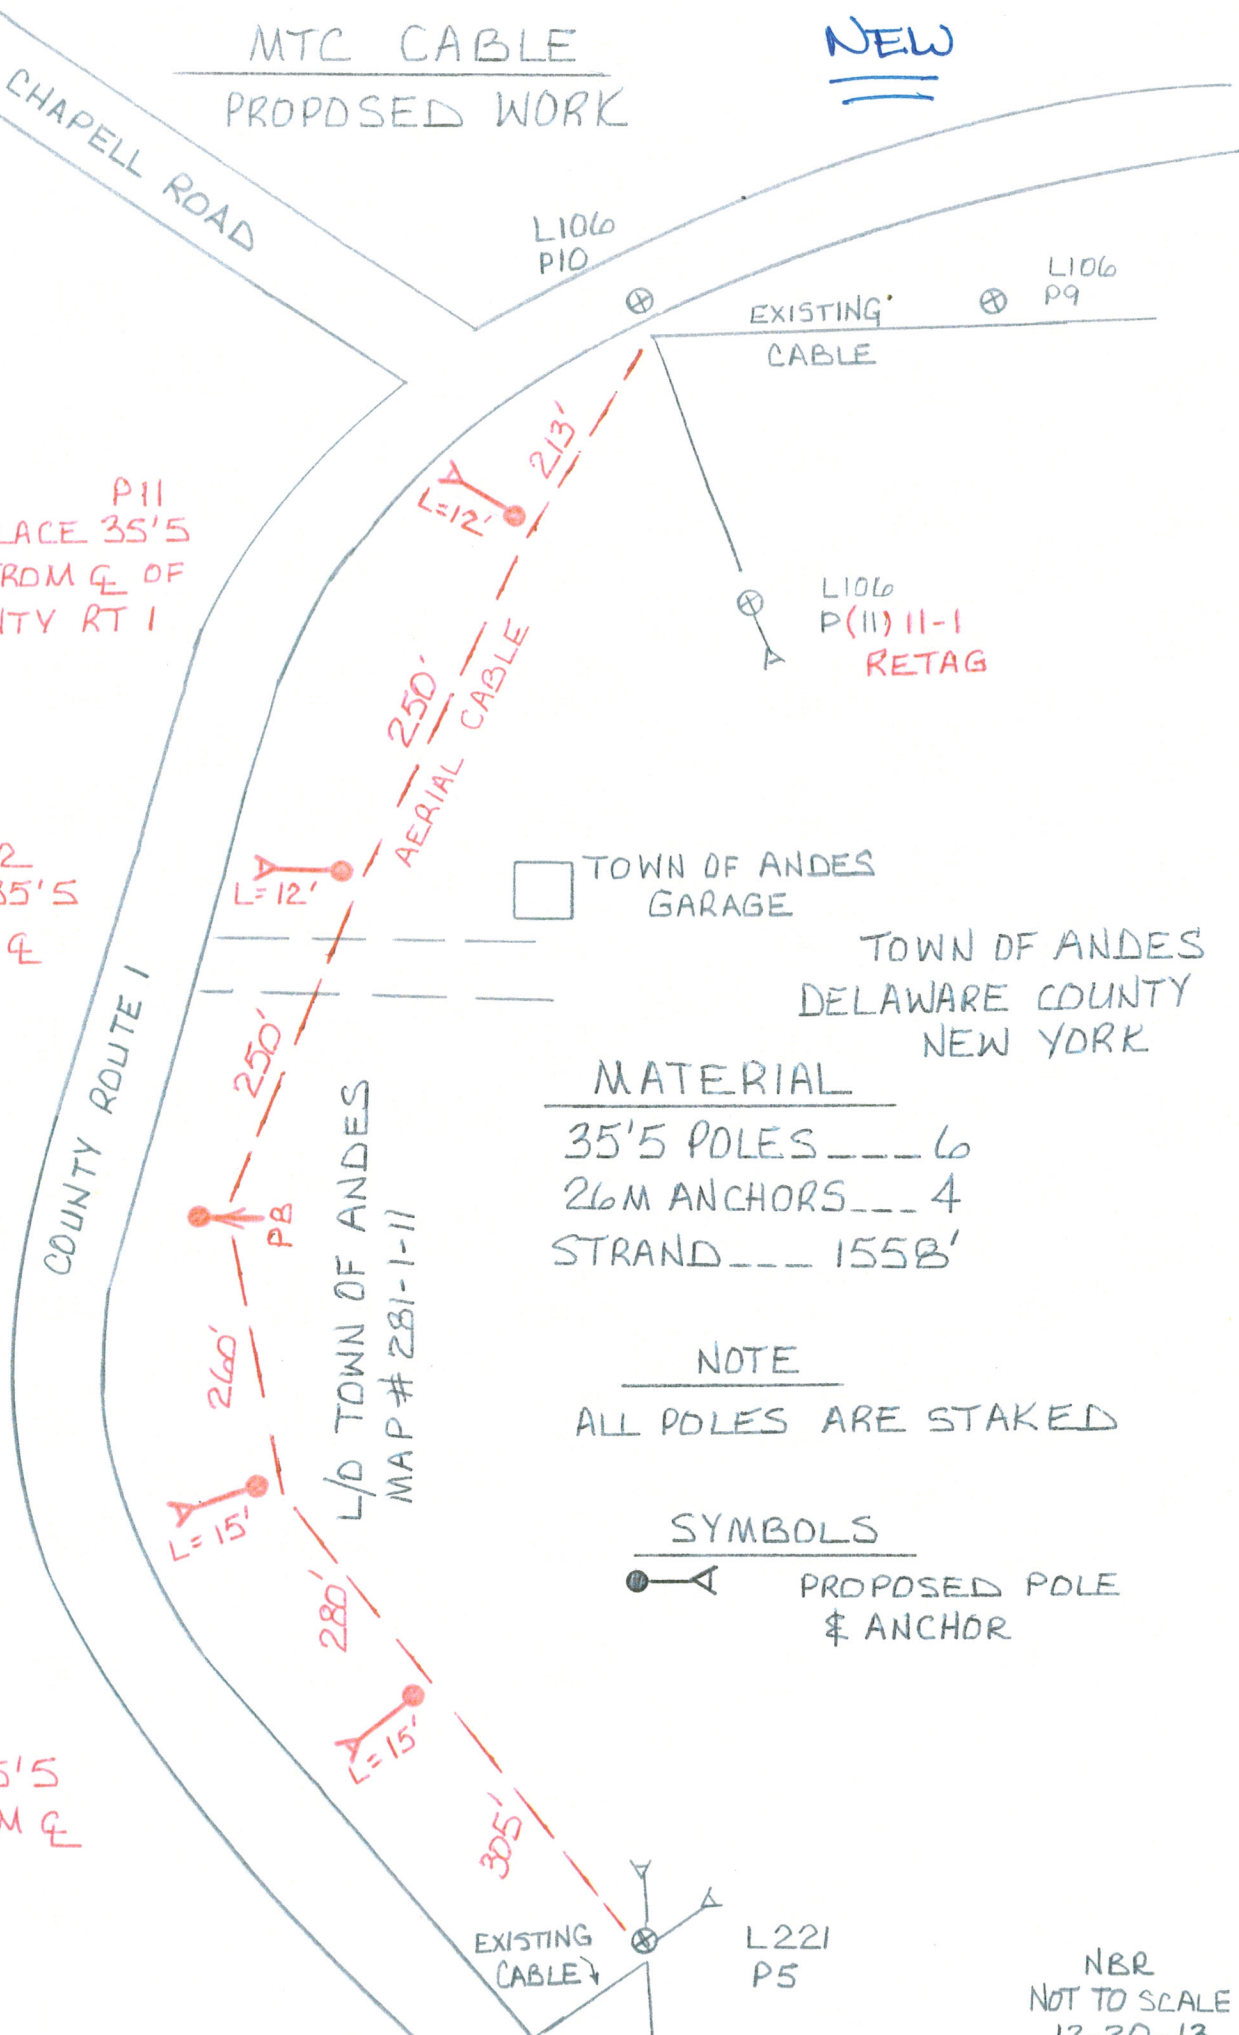 MTC CABLE
PROPOSED WORK
NEW
CHAPELL ROAD
L106
P10
L106
P9
EXISTING
CABLE
213'
L=12'
P11
LACE 35'5
ROM ℄ OF
NTY RT 1
L106
P(11) 11-1
RETAG
250'
AERIAL CABLE
2
35'5
℄
L=12'
TOWN OF ANDES
GARAGE
TOWN OF ANDES
DELAWARE COUNTY
NEW YORK
COUNTY ROUTE 1
250'
PB
L/O TOWN OF ANDES
MAP # 281-1-11
MATERIAL
35'5 POLES____6
26M ANCHORS___4
STRAND___ 1558'
260'
NOTE
ALL POLES ARE STAKED
L=15'
SYMBOLS
PROPOSED POLE
& ANCHOR
280'
L=15'
5'5
M ℄
305'
EXISTING
CABLE
L221
P5
NBR
NOT TO SCALE
12-20-13